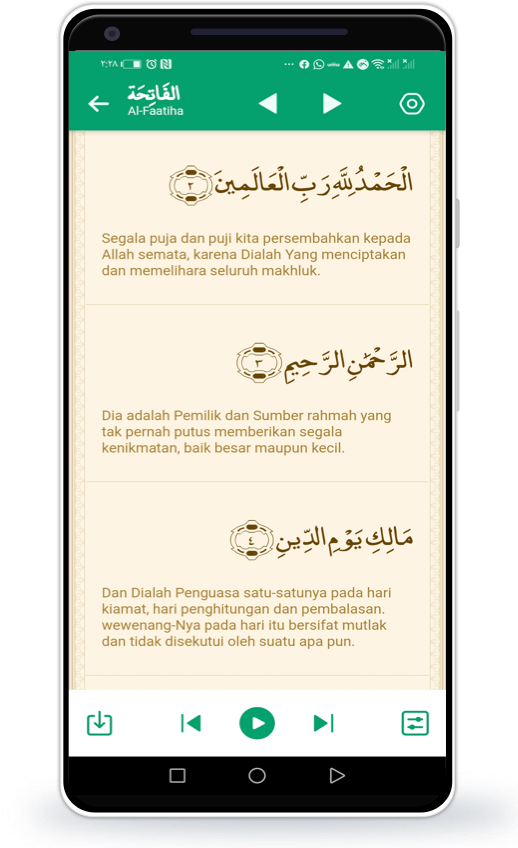 ٢:٢٨
الفَاتِحَة
Al-Faatiha
الْحَمْدُ لِلَّهِ رَبِّ الْعَالَمِينَ ٢
Segala puja dan puji kita persembahkan kepada
Allah semata, karena Dialah Yang menciptakan
dan memelihara seluruh makhluk.
الرَّحْمَٰنِ الرَّحِيمِ ٣
Dia adalah Pemilik dan Sumber rahmah yang
tak pernah putus memberikan segala
kenikmatan, baik besar maupun kecil.
مَالِكِ يَوْمِ الدِّينِ ٤
Dan Dialah Penguasa satu-satunya pada hari
kiamat, hari penghitungan dan pembalasan.
wewenang-Nya pada hari itu bersifat mutlak
dan tidak disekutui oleh suatu apa pun.